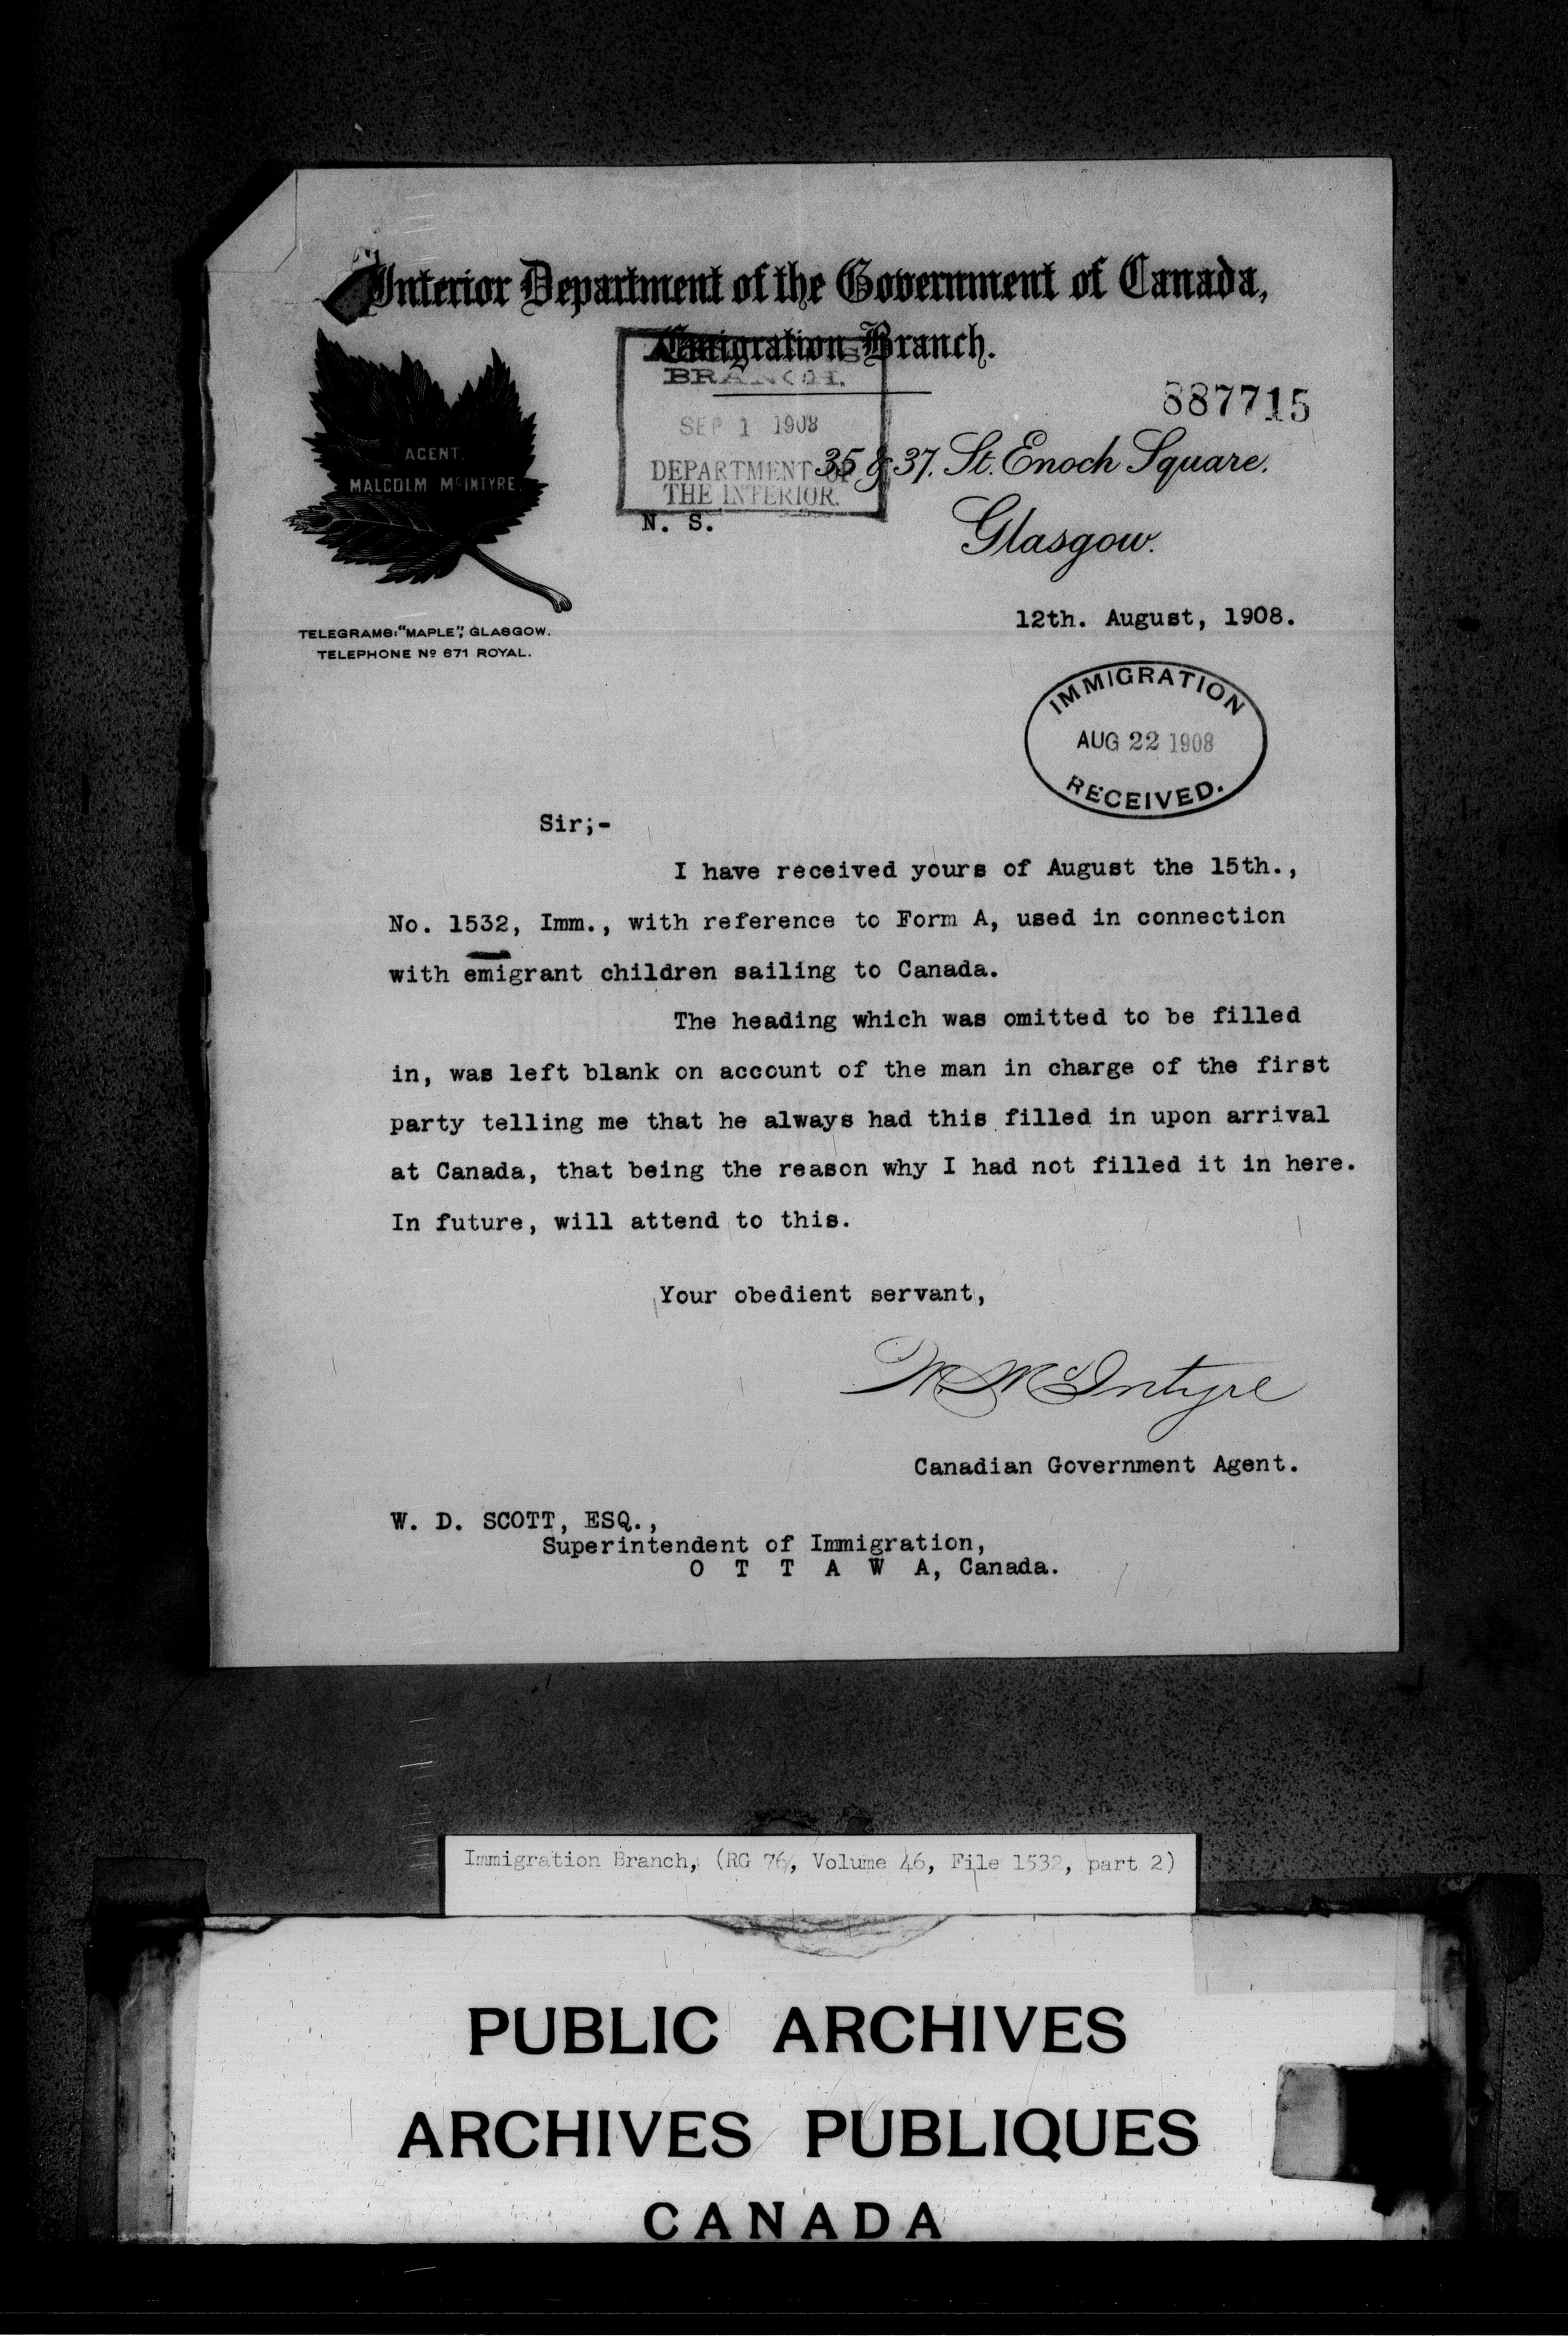 Interior Department of the Government of Canada,
Emigration Branch.
BRANCH.
SEP 1 1908
DEPARTMENT OF
THE INTERIOR.
887715
AGENT.
MALCOLM McINTYRE.
35 & 37. St. Enoch Square.
Glasgow.
N. S.
TELEGRAMS: "MAPLE", GLASGOW.
TELEPHONE No 671 ROYAL.
12th. August, 1908.
IMMIGRATION
AUG 22 1908
RECEIVED.
Sir;-
I have received yours of August the 15th.,
No. 1532, Imm., with reference to Form A, used in connection
with emigrant children sailing to Canada.
The heading which was omitted to be filled
in, was left blank on account of the man in charge of the first
party telling me that he always had this filled in upon arrival
at Canada, that being the reason why I had not filled it in here.
In future, will attend to this.
Your obedient servant,
M. McIntyre
Canadian Government Agent.
W. D. SCOTT, ESQ.,
Superintendent of Immigration,
O T T A W A, Canada.
Immigration Branch, (RG 76, Volume 46, File 1532, part 2)
PUBLIC ARCHIVES
ARCHIVES PUBLIQUES
CANADA